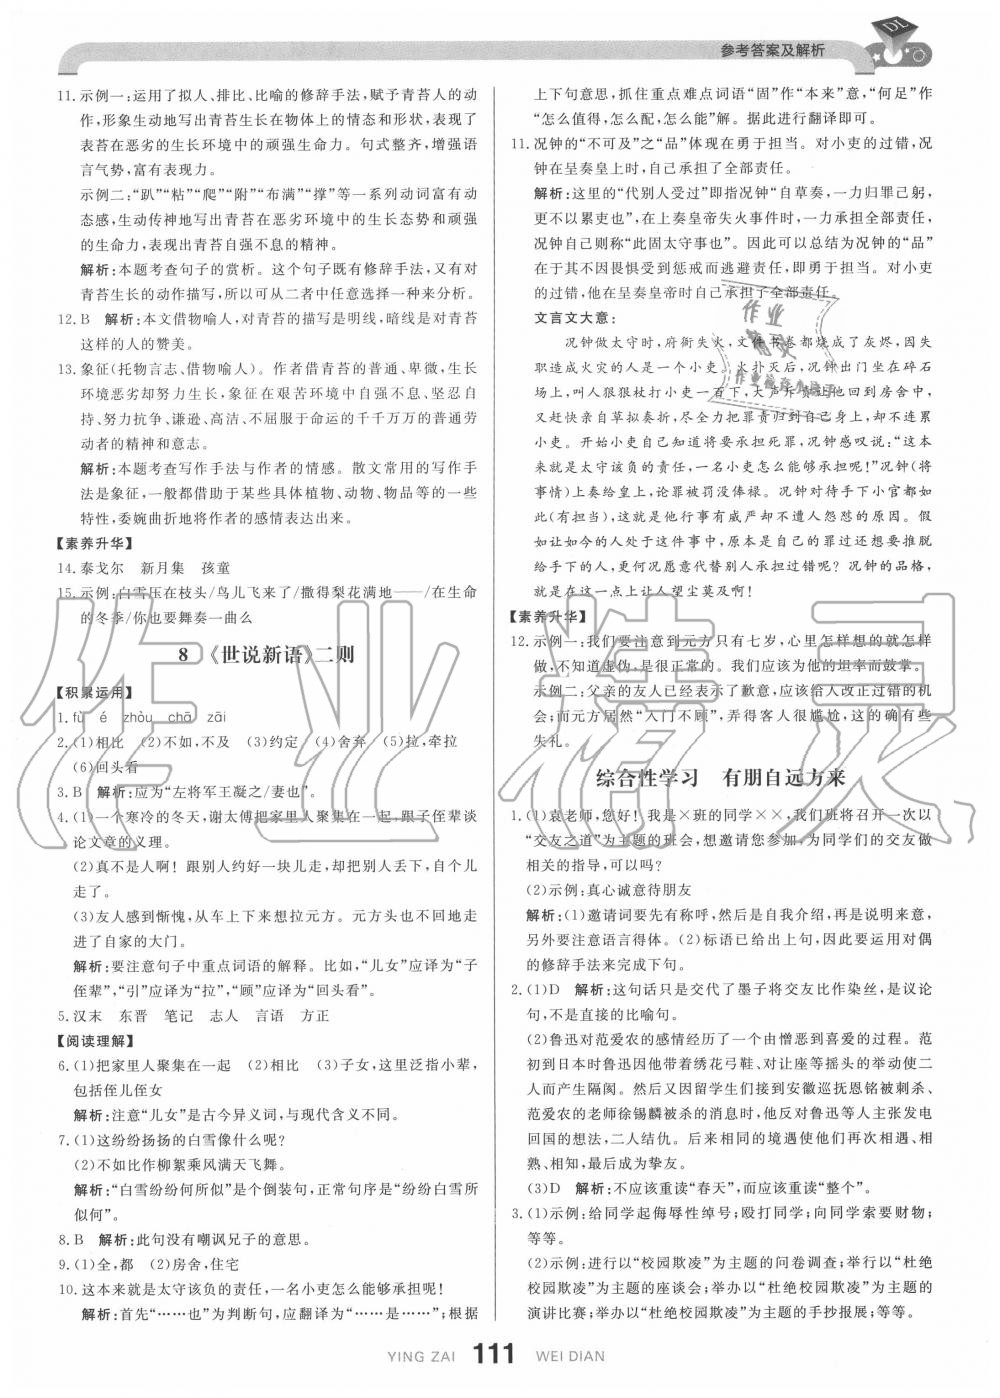 参考答案及解析
DL
11. 示例一:运用了拟人、排比、比喻的修辞手法,赋予青苔人的动
作,形象生动地写出青苔生长在物体上的情态和形状,表现了
青苔在恶劣的生长环境中的顽强生命力。句式整齐,增强语
言气势,富有表现力。
示例二:“趴”“粘”“爬”“附”“布满”“撑”等一系列动词富有动
态感,生动传神地写出青苔在恶劣环境中的生长态势和顽强
的生命力,表现出青苔自强不息的精神。
解析:本题考查句子的赏析。这个句子既有修辞手法,又有对
青苔生长的动作描写,所以可从二者中任意选择一种来分析。
12. B 解析:本文借物喻人,对青苔的描写是明线,暗线是对青苔
这样的人的赞美。
13. 象征(托物言志、借物喻人)。作者借青苔的普通、卑微、脆弱,
环境恶劣却努力生长,象征在艰苦环境中自强不息、坚忍自
持、努力抗争、谦逊、高洁、不屈于命运的千千万万的普通劳
动者的精神和意志。
解析:本题考查写作手法与作者的情感。散文常用的写作手
法是象征,一般都借助于某些具体植物、动物、物品等的一些
特性,委婉曲折地将作者的感情表达出来。
【素养升华】
14. 泰戈尔 新月集 孩童
15. 示例:白雪压在枝头/鸟儿飞来了/撒得梨花满地——/在生命
的冬季/你也要舞奏一曲么
8 《世说新语》二则
【积累运用】
1. fǔ é zhòu chā zāi
2. (1)相比 (2)不如,不及 (3)约定 (4)舍弃 (5)拉,牵拉
(6)回头看
3. B 解析:应为“左将军王凝之/妻也”。
4. (1)一个寒冷的冬天,谢太傅把家里人聚集在一起,跟子侄辈谈
论文章的义理。
(2)真不是人啊! 跟别人约好一块儿走,却把别人丢下,自个儿
走了。
(3)友人感到惭愧,从车上下来想拉元方。元方头也不回地走
进了自家的大门。
解析:要注意句子中重点词语的解释。比如,“儿女”应译为“子
侄辈”,“引”应译为“拉”,“顾”应译为“回头看”。
5. 汉末 东晋 笔记 志人 言语 方正
【阅读理解】
6. (1)把家里人聚集在一起 (2)相比 (3)子女,这里泛指小辈,
包括侄儿侄女
解析:注意“儿女”是古今异义词,与现代含义不同。
7. (1)这纷纷扬扬的白雪像什么呢?
(2)不如比作柳絮乘风满天飞舞。
解析:“白雪纷纷何所似”是个倒装句,正常句序是“纷纷白雪所
似何”。
8. B 解析:此句没有嘲讽兄子的意思。
9. (1)全,都 (2)房舍,住宅
10. 这本来就是太守该负的责任,一名小吏怎么能够承担呢!
解析:首先“……也”为判断句,应翻译为“……是……”;根据
上下句意思,抓住重点难点词语“固”作“本来”意,“何足”作
“怎么值得,怎么配,怎么能”解。据此进行翻译即可。
11. 况钟的“不可及”之“品”体现在勇于担当。对小吏的过错,况
钟在呈奏皇上时,自己承担了全部责任。
解析:这里的“代别人受过”即指况钟“自草奏,一力归罪己躬,
更不以累吏也”,在上奏皇帝失火事件时,一力承担全部责任,
况钟自己则称“此固太守事也”。因此可以总结为况钟的“品”
在于其不因畏惧受到惩戒而逃避责任,即勇于担当。对小吏
的过错,他在呈奏皇帝时自己承担了全部责任。
文言文大意:
况钟做太守时,府衙失火,文件书卷都烧成了灰烬,因失
职造成火灾的人是一个小吏。火扑灭后,况钟出门坐在碎石
场上,叫人狠狠杖打小吏一百下,大声斥责让他回到房舍中,
又赶快亲自草拟奏折,尽全力把罪责归到自己身上,却不连累
小吏。开始小吏自己知道将要承担死罪,况钟感叹说:“这本
来就是太守该负的责任,一名小吏怎么能够承担呢!”况钟(将
事情)上奏给皇上,论罪被罚没俸禄。况钟对待手下小官都如
此(有担当),这就是他行事有威严却不遭人怨怼的原因。假
如让如今的人处于这件事中,原本是自己的罪过还想要推脱
给手下的人,更何况愿意代替别人承担过错呢? 况钟的品格,
就是在这一点上让人望尘莫及啊!
【素养升华】
12. 示例一:我们要注意到元方只有七岁,心里怎样想的就怎样
做,不知道虚伪,是很正常的。我们应该为他的坦率而鼓掌。
示例二:父亲的友人已经表示了歉意,应该给人改正过错的机
会;而元方居然“入门不顾”,弄得客人很尴尬,这的确有些
失礼。
综合性学习 有朋自远方来
1. (1)袁老师,您好! 我是×班的同学××,我们班将召开一次以
“交友之道”为主题的班会,想邀请您参加,为同学们的交友做
相关的指导,可以吗?
(2)示例:真心诚意待朋友
解析:(1)邀请词要先有称呼,然后是自我介绍,再是说明来意,
另外要注意语言得体。(2)标语已给出上句,因此要运用对偶
的修辞手法来完成下句。
2. (1)D 解析:这句话只是交代了墨子将交友比作染丝,是议论
句,不是直接的比喻句。
(2)鲁迅对范爱农的感情经历了一个由憎恶到喜爱的过程。范
初到日本时鲁迅因他带着绣花弓鞋、对让座等摇头的举动使二
人而产生隔阂。然后又因留学生们接到安徽巡抚恩铭被刺杀、
范爱农的老师徐锡麟被杀的消息时,他反对鲁迅等人主张发电
回国的想法,二人结仇。后来相同的境遇使他们再次相遇、相
熟、相知,最后成为挚友。
(3)D 解析:不应该重读“春天”,而应该重读“整个”。
3. (1)示例:给同学起侮辱性绰号;殴打同学;向同学索要财物;
等等。
(2)示例:进行以“校园欺凌”为主题的问卷调查;举行以“杜绝
校园欺凌”为主题的座谈会;举办以“杜绝校园欺凌”为主题的
演讲比赛;举办以“杜绝校园欺凌”为主题的手抄报展;等等。
YING ZAI 111 WEI DIAN
作业精灵